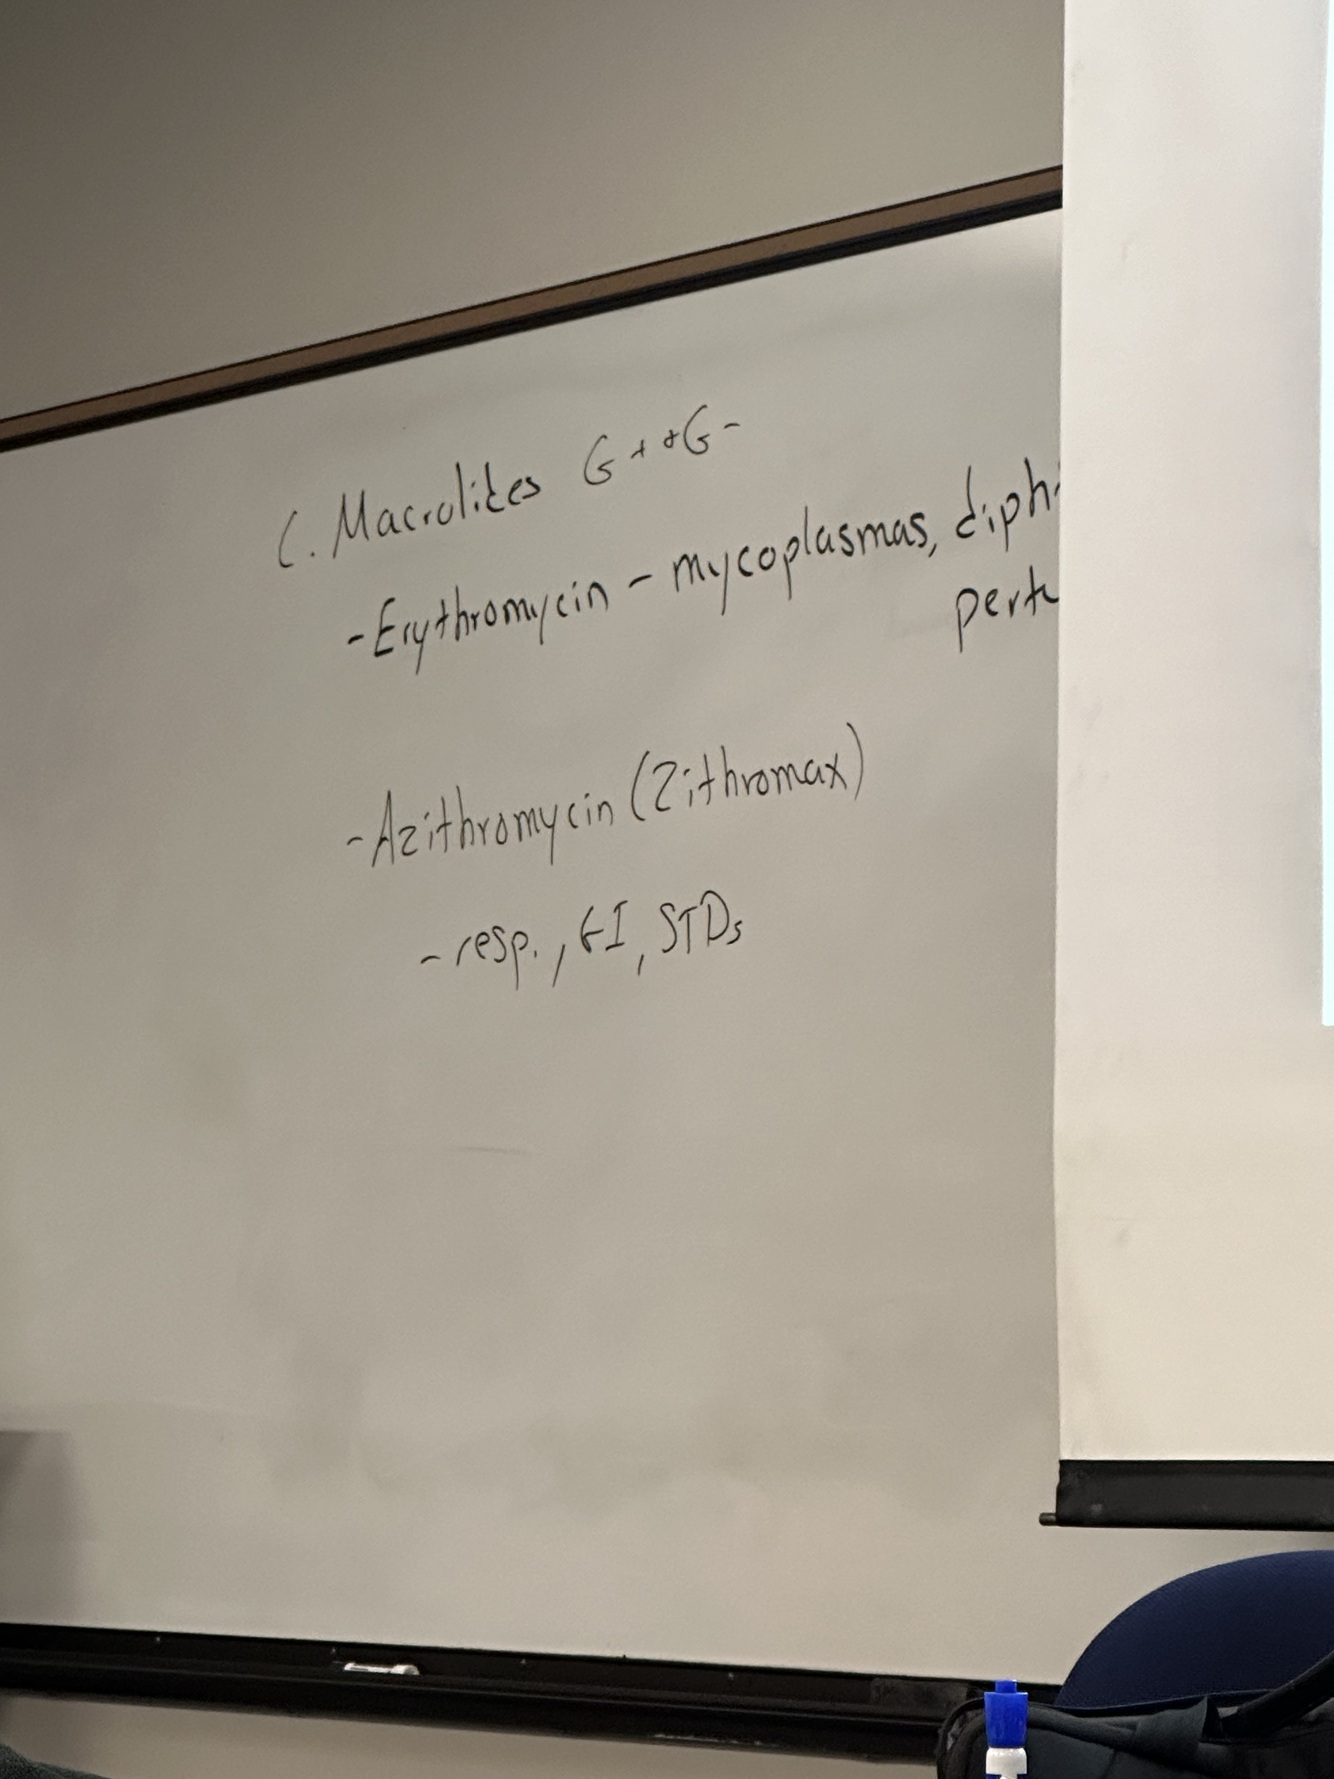 C. Macrolites G+ + G-
- Erythromycin - mycoplasmas, diph
pert
- Azithromycin (Zithromax)
- resp., GI, STDs